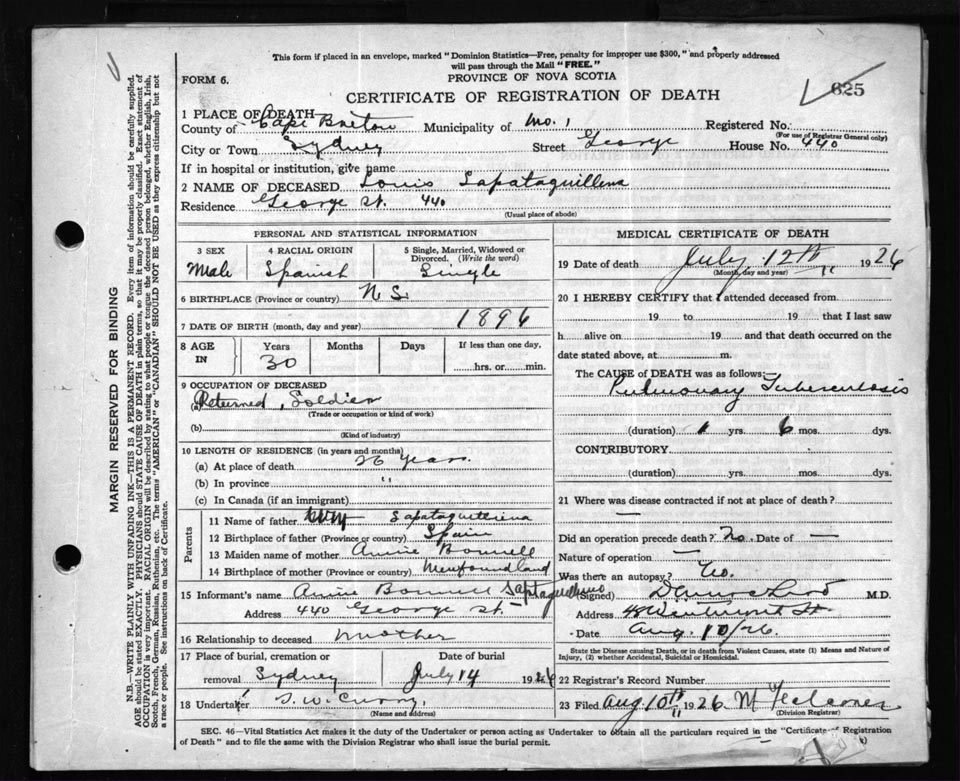 This form if placed in an envelope, marked "Dominion Statistics—Free, penalty for improper use $300," and properly addressed
will pass through the Mail "FREE."
FORM 6.
PROVINCE OF NOVA SCOTIA
625
CERTIFICATE OF REGISTRATION OF DEATH
1 PLACE OF DEATH
County of Cape Breton Municipality of No. 1 Registered No.
(For use of Registrar General only)
City or Town Sydney Street George House No. 440
If in hospital or institution, give name
2 NAME OF DECEASED Louis Sapataquillena
Residence George St. 440
(Usual place of abode)
PERSONAL AND STATISTICAL INFORMATION
3 SEX 4 RACIAL ORIGIN 5 Single, Married, Widowed or Divorced. (Write the word)
Male Spanish Single
6 BIRTHPLACE (Province or country) N S.
7 DATE OF BIRTH (month, day and year) 1896
8 AGE IN Years Months Days If less than one day,
30 hrs. or min.
9 OCCUPATION OF DECEASED
(a) Returned, Soldier
(Trade or occupation or kind of work)
(b)
(Kind of industry)
10 LENGTH OF RESIDENCE (in years and months)
(a) At place of death 26 Years.
(b) In province "
(c) In Canada (if an immigrant)
Parents
11 Name of father
12 Birthplace of father (Province or country) Spain
13 Maiden name of mother Annie Bonnell
14 Birthplace of mother (Province or country) Newfoundland
15 Informant's name Annie Bonnell
Address 440 George St.
16 Relationship to deceased mother
17 Place of burial, cremation or removal Sydney Date of burial July 14 1926
18 Undertaker
(Name and address)
MEDICAL CERTIFICATE OF DEATH
19 Date of death July 12th 1926
(Month, day and year)
20 I HEREBY CERTIFY that I attended deceased from
19 to 19 that I last saw
h alive on 19 and that death occurred on the
date stated above, at m.
The CAUSE of DEATH was as follows:
Pulmonary Tuberculosis
(duration) 1 yrs. 6 mos. dys.
CONTRIBUTORY
(duration) yrs. mos. dys.
21 Where was disease contracted if not at place of death?
—
Did an operation precede death? No. Date of —
Nature of operation —
Was there an autopsy? No.
(Signed) M.D.
Address
Date Aug. 10/26
State the Disease causing Death, or in death from Violent Causes, state (1) Means and Nature of
Injury, (2) whether Accidental, Suicidal or Homicidal.
22 Registrar's Record Number
23 Filed Aug 10th 1926
(Division Registrar)
SEC. 46—Vital Statistics Act makes it the duty of the Undertaker or person acting as Undertaker to obtain all the particulars required in the "Certificate of Registration
of Death" and to file the same with the Division Registrar who shall issue the burial permit.
MARGIN RESERVED FOR BINDING
N.B.—WRITE PLAINLY WITH UNFADING INK—THIS IS A PERMANENT RECORD. Every item of information should be carefully supplied.
AGE should be stated EXACTLY. PHYSICIANS should STATE CAUSE OF DEATH in plain terms, so that it may be properly classified. Exact statement of
OCCUPATION is very important. RACIAL ORIGIN will be described by stating to what people or tongue the deceased person belonged, whether English, Irish,
Scotch, French, German, Russian, Ruthenian, etc. The terms "AMERICAN" or "CANADIAN" SHOULD NOT BE USED as they express citizenship but not
a race or people. See instructions on back of Certificate.